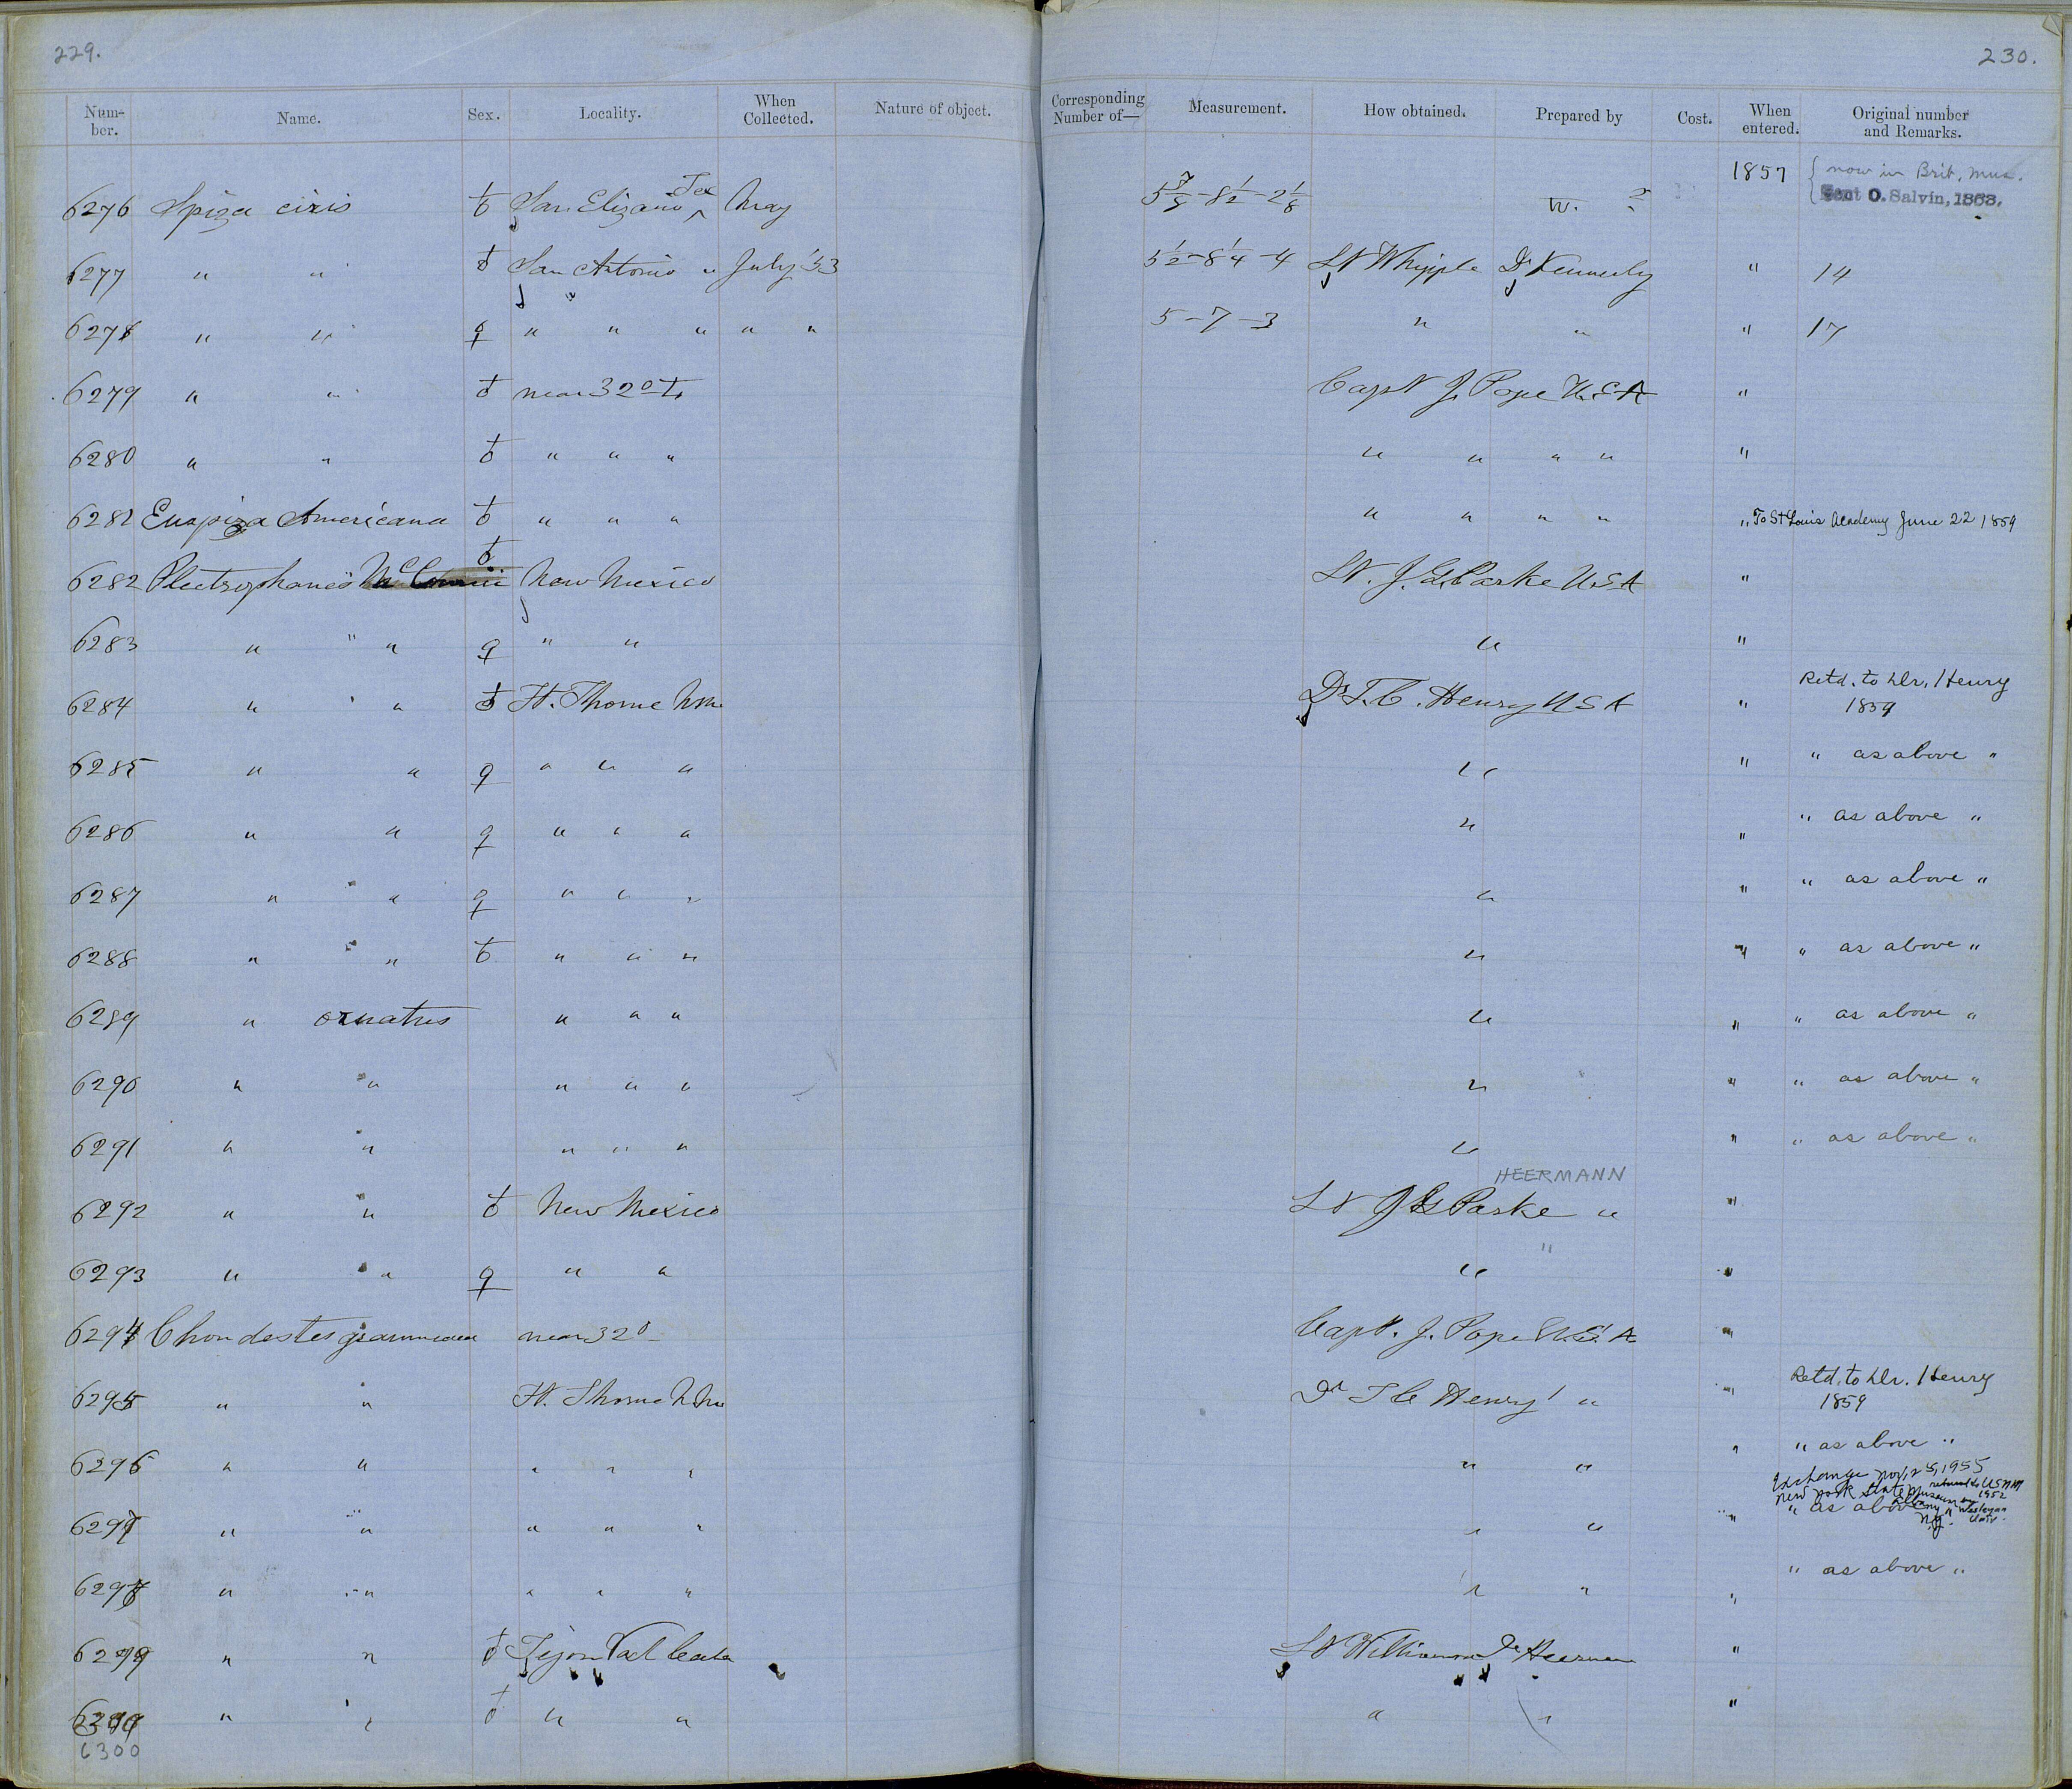 229.
230.
Num-ber. Name. Sex. Locality. When Collected. Nature of object. Corresponding Number of— Measurement. How obtained. Prepared by Cost. When entered. Original number and Remarks.
6276 Spiza ciris ♂ San Elizario Tex ^ May 5 7/8 - 8 1/2 - 2 1/8 W. ? 1857 { now in Brit. Mus. Sent O. Salvin, 1863.
6277 " " ♂ San Antonio " July '53 5 1/2 - 8 1/4 - 4 Lt Whipple Dr Kennerly " 14
6278 " " ♀ " " " " " 5 - 7 - 3 " " " 17
6279 " " ♂ near 32° T. Capt J. Pope U.S.A "
6280 " " ♂ " " " " " " " "
6281 Euspiza Americana ♂ " " " " " " " " To St Louis Academy June 22 1859
6282 Plectrophanes McCownii ♂ New Mexico Lt. J. G. Parke U.S.A "
6283 " " " ♀ " " " "
6284 " " " ♂ Ft. Thorne N.M. Dr T. C. Henry U S A " Retd. to Dr. Henry 1859
6285 " " ♀ " " " " " " as above "
6286 " " ♀ " " " " " " as above "
6287 " " ♀ " " " " " " as above "
6288 " " ♂ " " " " " " as above "
6289 " ornatus " " " " " " as above "
6290 " " " " " " " " as above "
6291 " " " " " " " " as above "
HEERMANN
6292 " " ♂ New Mexico Lt J G Parke " "
6293 " " ♀ " " " " "
6294 Chondestes grammaca near 32° Capt. J. Pope U.S.A "
6295 " " Ft. Thorne N.M. Dr T C Henry " " Retd. to Dr. Henry 1859
6296 " " " " " " " " " as above "
Exchange Nov. 25, 1955 New York State Museum Albany N.Y. returned to USNM 1952 Wesleyan Univ.
6297 " " " " " " " " " as above "
6298 " " " " " " " " " as above "
6299 " " ♂ Tejon Val Cala Lt Williamson Dr Heerman "
6299 " " ♂ " " " " "
6300